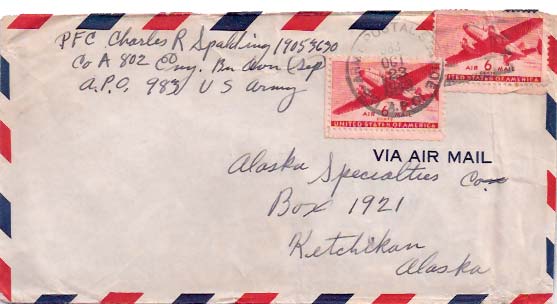 PFC Charles R Spalding 19053630
Co A 802 Eng. Bn Avn (Sep)
A.P.O. 983 U S Army
U.S. ARMY POSTAL SERVICE
OCT
23
A.P.O.
AIR 6 MAIL
CENTS
UNITED STATES OF AMERICA
AIR 6 MAIL
CENTS
UNITED STATES OF AMERICA
VIA AIR MAIL
Alaska Specialties Co
Box 1921
Ketchikan
Alaska